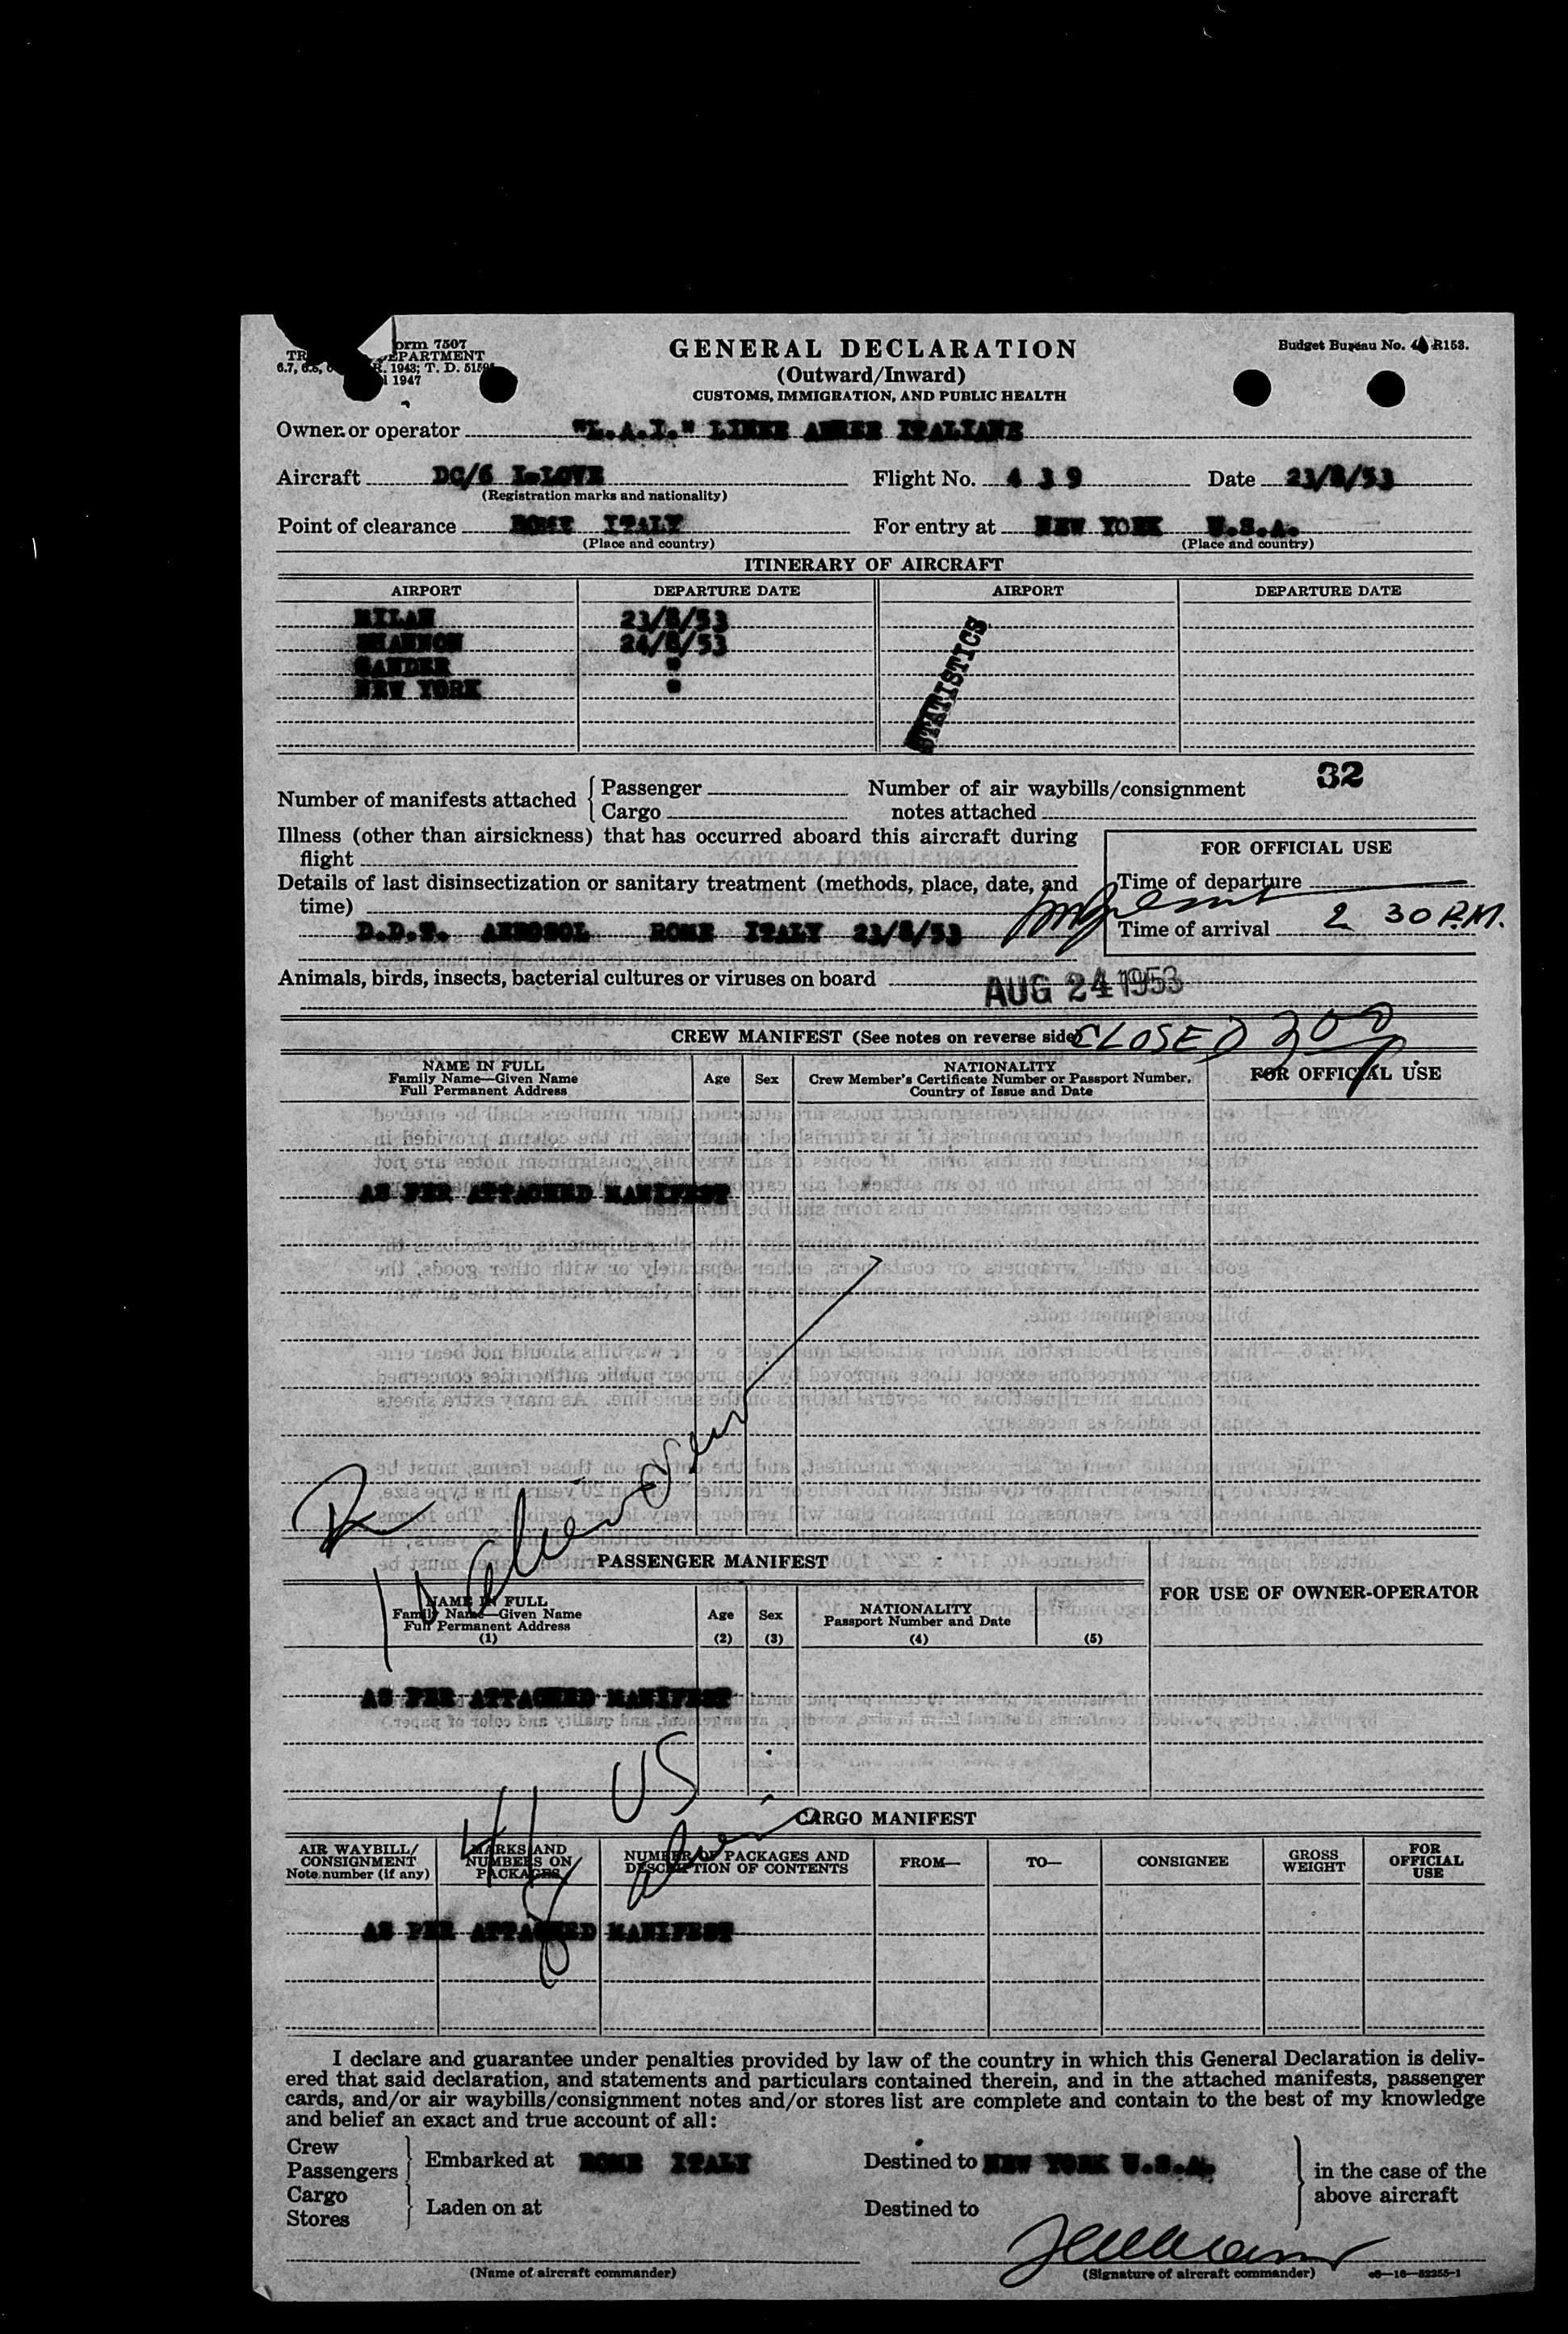 Form 7507
DEPARTMENT
1943; T. D. 5159
1947
GENERAL DECLARATION
(Outward/Inward)
CUSTOMS, IMMIGRATION, AND PUBLIC HEALTH
Budget Bureau No. R153.
Owner or operator "L.A.I." LINEE AEREE ITALIANE
Aircraft DC/6 I-LOVE
(Registration marks and nationality)
Flight No. 4 3 9 Date 23/8/53
Point of clearance ROME ITALY
(Place and country)
For entry at NEW YORK U.S.A.
(Place and country)
ITINERARY OF AIRCRAFT
AIRPORT DEPARTURE DATE AIRPORT DEPARTURE DATE
MILAN 23/8/53
SHANNON 24/8/53
GANDER "
NEW YORK "
STATISTICS
32
Number of manifests attached { Passenger
Cargo
Number of air waybills/consignment
notes attached
Illness (other than airsickness) that has occurred aboard this aircraft during
flight
Details of last disinsectization or sanitary treatment (methods, place, date, and
time)
D.D.T. AEROSOL ROME ITALY 23/8/53
FOR OFFICIAL USE
Time of departure
Time of arrival 2 30 P.M.
Animals, birds, insects, bacterial cultures or viruses on board
AUG 24 1953
CREW MANIFEST (See notes on reverse side)
CLOSED 300
NAME IN FULL
Family Name—Given Name
Full Permanent Address
Age Sex
NATIONALITY
Crew Member's Certificate Number or Passport Number,
Country of Issue and Date
FOR OFFICIAL USE
AS PER ATTACHED MANIFEST
PASSENGER MANIFEST
NAME IN FULL
Family Name—Given Name
Full Permanent Address
(1)
Age
(2)
Sex
(3)
NATIONALITY
Passport Number and Date
(4)
(5)
FOR USE OF OWNER-OPERATOR
AS PER ATTACHED MANIFEST
US
CARGO MANIFEST
AIR WAYBILL/
CONSIGNMENT
Note number (if any)
MARKS AND
NUMBERS ON
PACKAGES
NUMBER OF PACKAGES AND
DESCRIPTION OF CONTENTS
FROM— TO— CONSIGNEE
GROSS
WEIGHT
FOR
OFFICIAL
USE
AS PER ATTACHED MANIFEST
I declare and guarantee under penalties provided by law of the country in which this General Declaration is deliv-
ered that said declaration, and statements and particulars contained therein, and in the attached manifests, passenger
cards, and/or air waybills/consignment notes and/or stores list are complete and contain to the best of my knowledge
and belief an exact and true account of all:
Crew
Passengers } Embarked at ROME ITALY Destined to NEW YORK U.S.A.
Cargo
Stores } Laden on at Destined to
} in the case of the
above aircraft
(Name of aircraft commander)
(Signature of aircraft commander)
16—52255-1